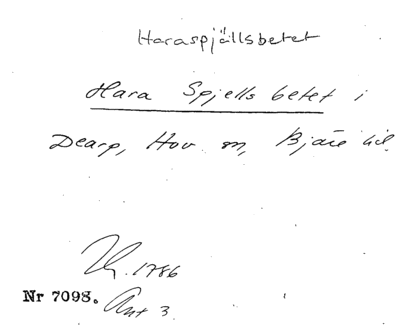 Haraspjällsbetet
Hara Spjells betet i
Dearp, Hov sn, Bjäre hd.
1786
Nr 7098. Akt 3